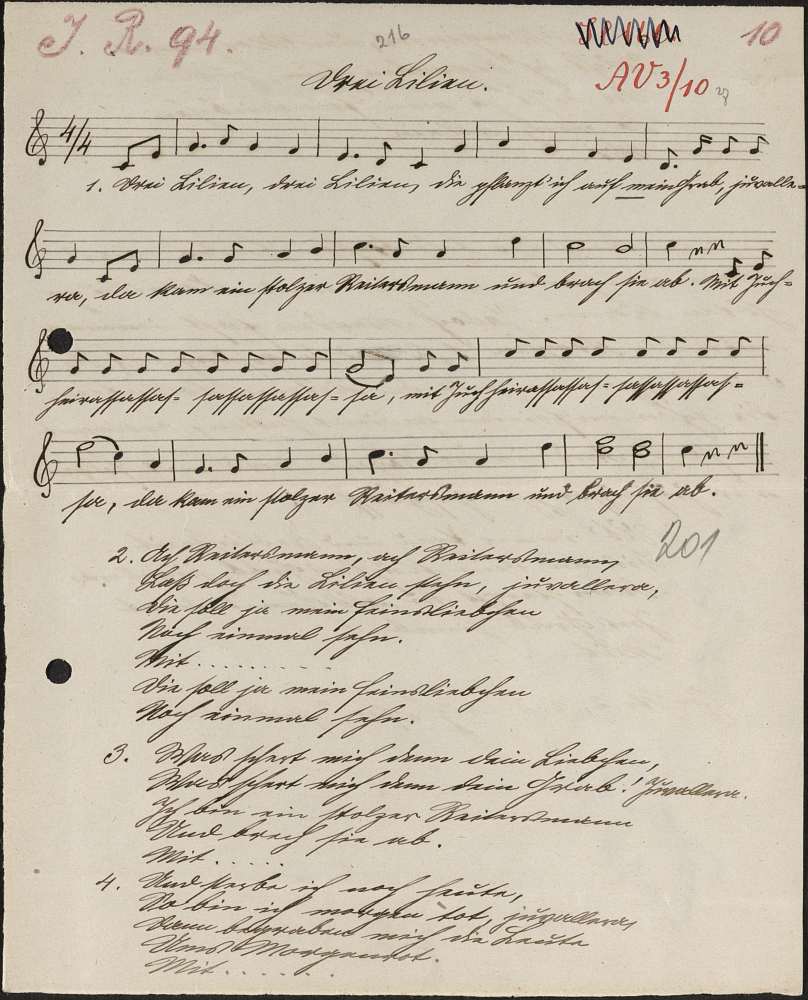 J. R. 94.
216
10
Drei Lilien.
AV 3/10
4/4
1. Drei Lilien, drei Lilien, die pflanzt' ich auf mein Grab, juvalle-
ra, da kam ein stolzer Reitersmann und brach sie ab. Mit Juch-
heirassassas- sassassassas- sa, mit Juchheirassassas- sassassassas-
sa, da kam ein stolzer Reitersmann und brach sie ab.
201
2. Ach Reitersmann, ach Reitersmann,
Laß doch die Lilien stehn, juvallera,
Die soll ja mein Feinsliebchen
Noch einmal sehn.
Mit . . . . . . . . .
Die soll ja mein Feinsliebchen
Noch einmal sehn.
3. Was schert mich denn dein Liebchen,
Was schert mich denn dein Grab! Juvallera.
Ich bin ein stolzer Reitersmann
Und brech sie ab.
Mit . . . . .
4. Und sterbe ich noch heute,
So bin ich morgen tot, juvallera,
Dann begraben mich die Leute
Ums Morgenrot.
Mit . . . . . .